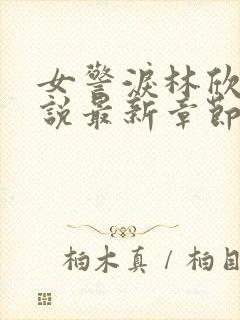 女警淚林欣
說最新章節
柏木真 / 柏目